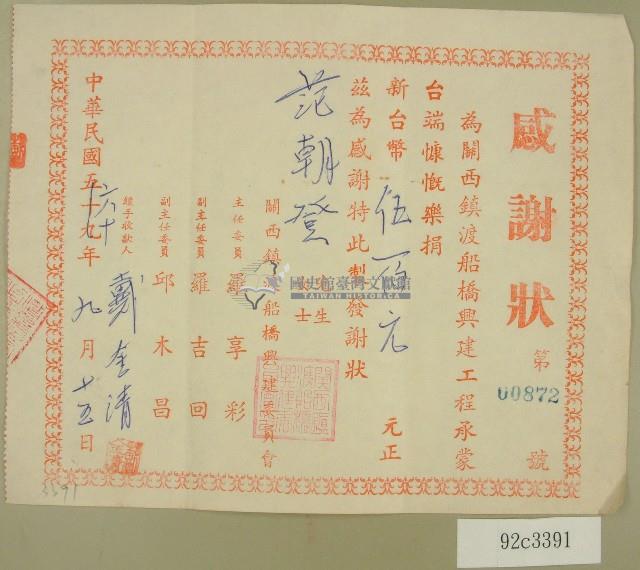 感謝狀
第
00872
號
為關西鎮渡船橋興建工程承蒙
台端慷慨樂捐
新台幣 伍佰元 元正
茲為感謝特此製發謝狀
范朝登
先生
女士
關西鎮渡船橋興建委員會
主任委員 羅享彩
副主任委員 羅吉回
副主任委員 邱木昌
經手收款人
中華民國五十九年六十九月十五日
國史館臺灣文獻館
TAIWAN HISTORICA
3391
92c3391